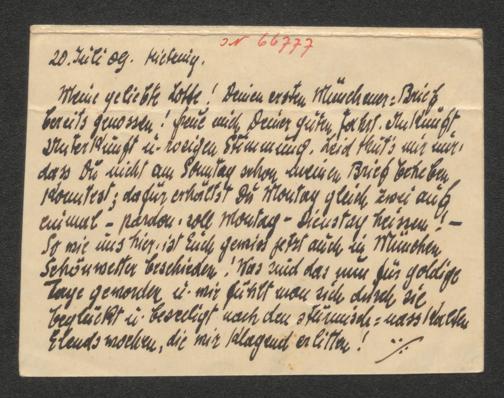 ON 66777
20. Juli 09. Hietzing.
Meine geliebte Lotte! Deinen ersten Münchener-Brief
bereits genossen! freue mich Deiner guten Fahrt, Ankunft
Unterkunft u. rosigen Stimmung. Leid thut's mir nur,
dass Du nicht am Sonntag schon meinen Brief beheben
konntest; dafür erhältst Du Montag gleich zwei auf
einmal – pardon, soll Montag – Dienstag heissen! –
So wie uns hier, ist Euch gewiss jetzt auch in München
Schönwetter beschieden! Was sind das nun für goldige
Tage geworden u. wie fühlt man sich durch sie
beglückt u. beseeligt nach den stürmisch = nass kalten
Elendswochen, die wir klagend erlitten!